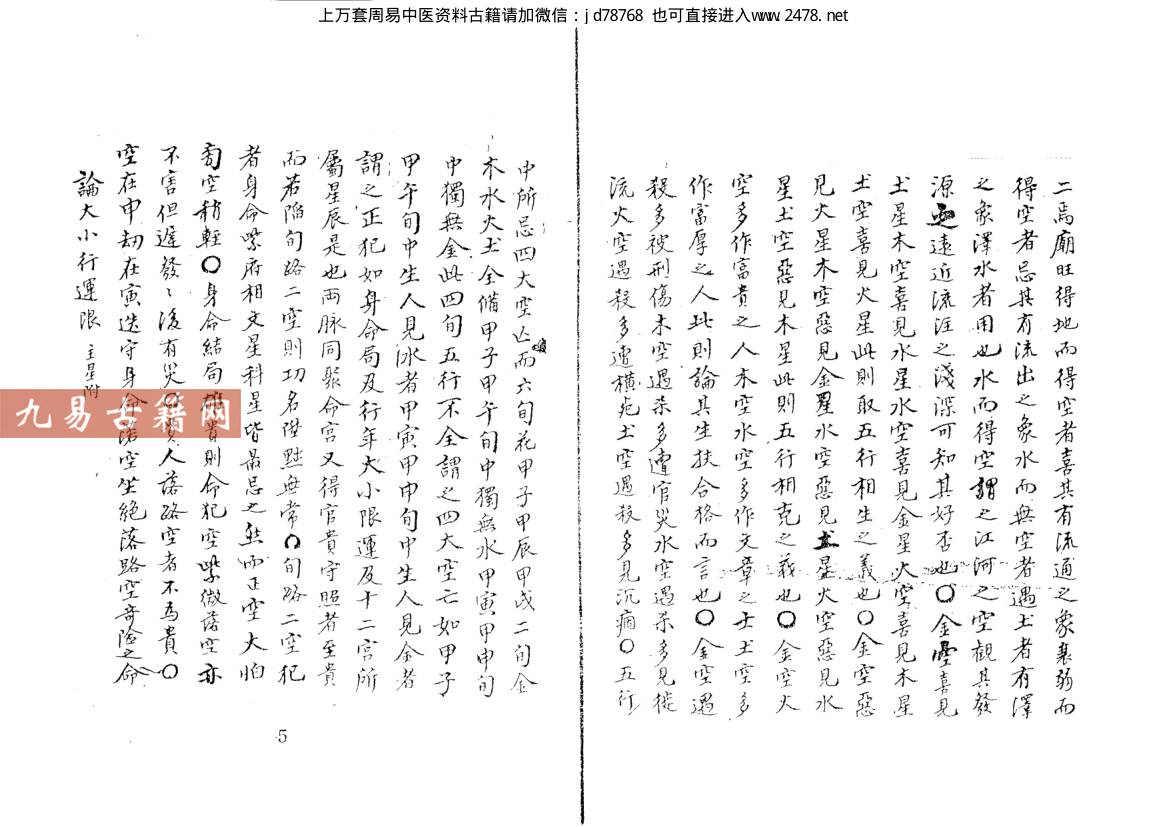 上万套周易中医资料古籍请加微信：jd78768 也可直接进入www.2478.net
二焉廟旺得地而得空者喜其有流通之象衰弱而
得空者忌其有流出之象水而無空者遇土者有澤
之象澤水者用也水而得空謂之江河之空觀其發
源遠近流注之淺深可知其好否也〇金空喜見
土星木空喜見水星水空喜見金星火空喜見木星
土空喜見火星此則取五行相生之義也〇金空惡
見火星木空惡見金星水空惡見土星火空惡見水
星土空惡見木星此則五行相克之義也〇金空火
空多作富貴之人木空水空多作文章之士土空多
作富厚之人此則論其生扶合格而言也〇金空遇
殺多被刑傷木空遇杀多遭官災水空遇杀多見徙
流火空遇殺多遭橫死土空遇殺多見沉痼〇五行
中所忌四大空亡而六旬花甲子甲辰甲戌二旬金
木水火土全備甲子甲午旬中獨無水甲寅甲申旬
中獨無金此四旬五行不全謂之四大空亡如甲子
甲午旬中生人見水者甲寅甲申旬中生人見金者
謂之正犯如身命局及行年大小限運及十二宮所
屬星辰是也兩脉同聚命宮又得官貴守照者至貴
而若陷旬路二空則功名陞黜無常〇旬路二空犯
者身命紫府相文星科星皆最忌之然而正空大怕
旬空稍輕〇身命結局雄貴則命犯空紫微落空亦
不害但遲發〻後有災〇貴人落路空者不為貴〇
空在申劫在寅迭守身命落空坐絕落路空奇險之命
論大小行運限 主星附
九易古籍网
5